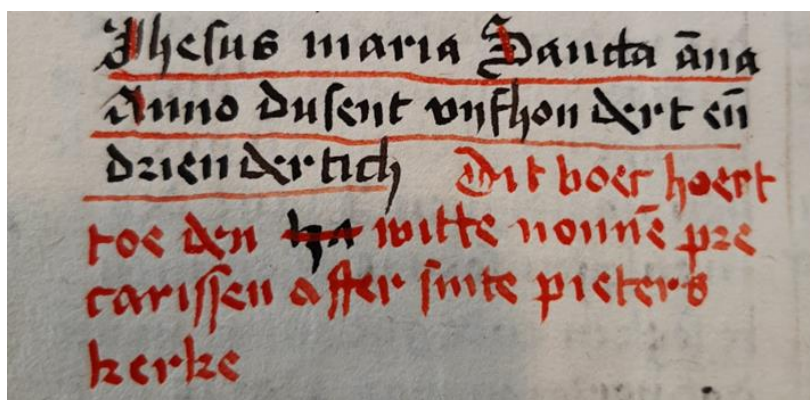 Jhesus maria Sancta āna
Anno dusent vyfhondert eñ
driendertich Dit boec hoert
toe den ha witte nonnē pre
carissen after sinte pieters
kerke